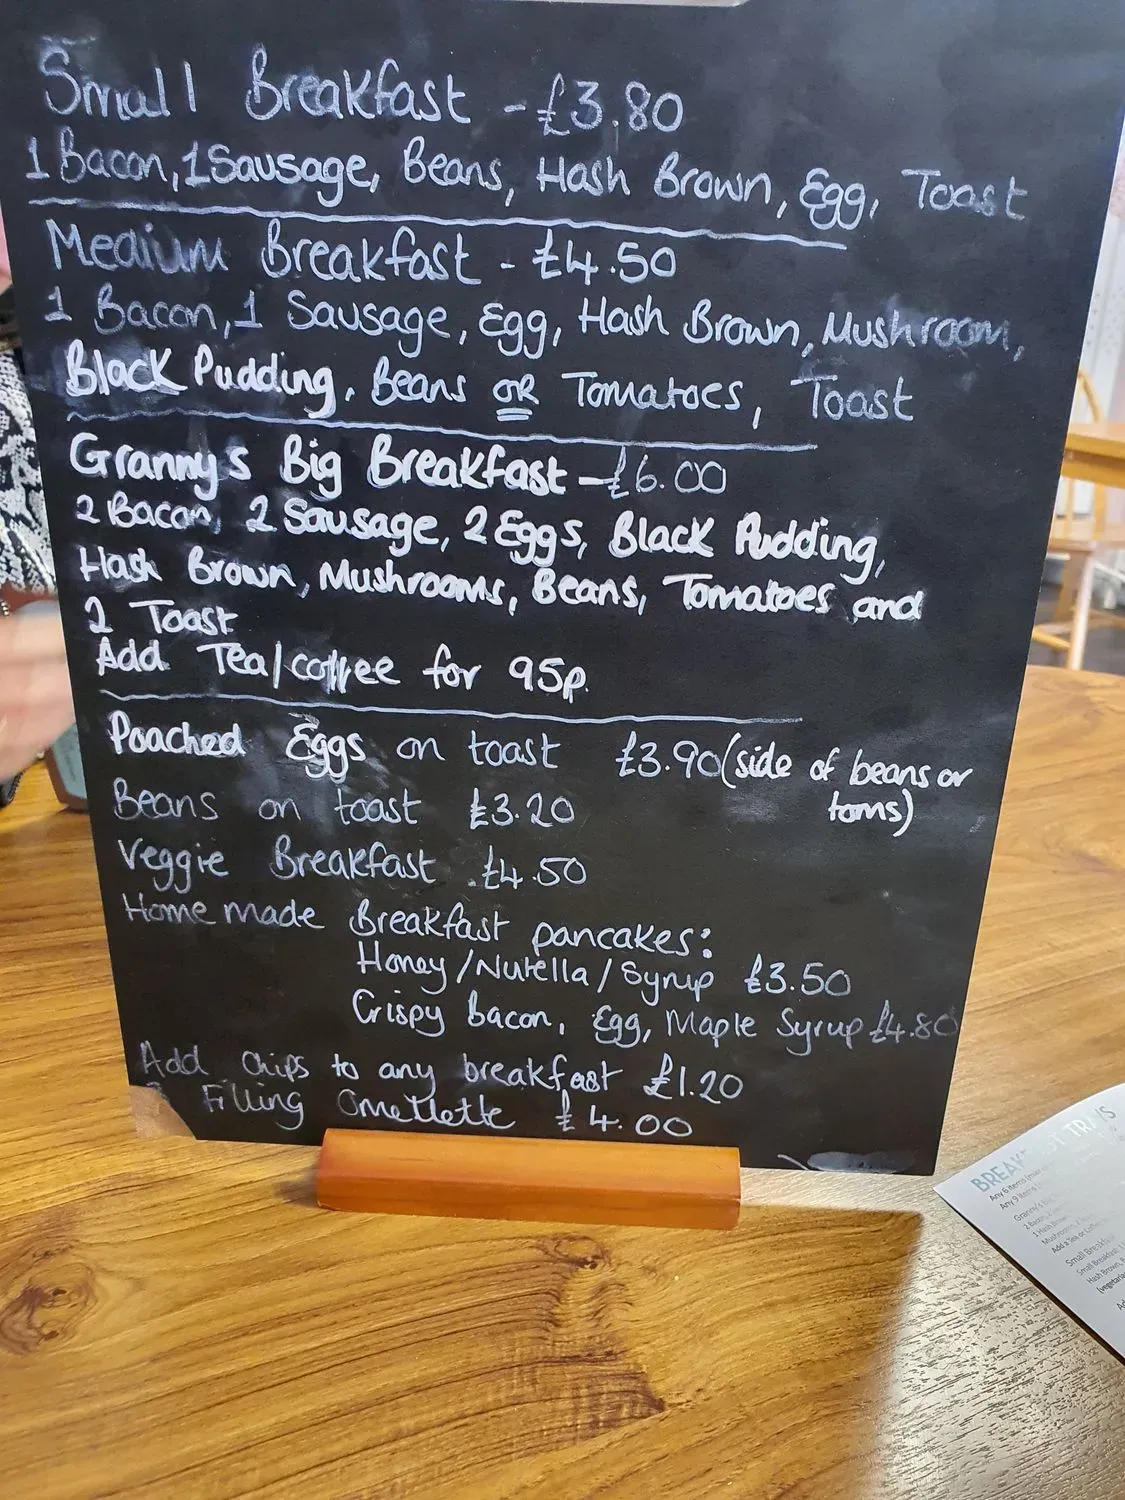 Small Breakfast - £3.80
1 Bacon, 1 Sausage, Beans, Hash Brown, Egg, Toast
Medium Breakfast - £4.50
1 Bacon, 1 Sausage, Egg, Hash Brown, Mushroom,
Black Pudding, Beans OR Tomatoes, Toast
Granny's Big Breakfast - £6.00
2 Bacon, 2 Sausage, 2 Eggs, Black Pudding,
Hash Brown, Mushrooms, Beans, Tomatoes and
2 Toast
Add Tea/coffee for 95p.
Poached Eggs on toast £3.90 (side of beans or
toms)
Beans on toast £3.20
Veggie Breakfast £4.50
Home made Breakfast pancakes:
Honey/Nutella/Syrup £3.50
Crispy bacon, Egg, Maple Syrup £4.80
Add Chips to any breakfast £1.20
Filling Omettette £4.00
Any 6 items
Any 9 items
Small Breakfast
Hash Brown,